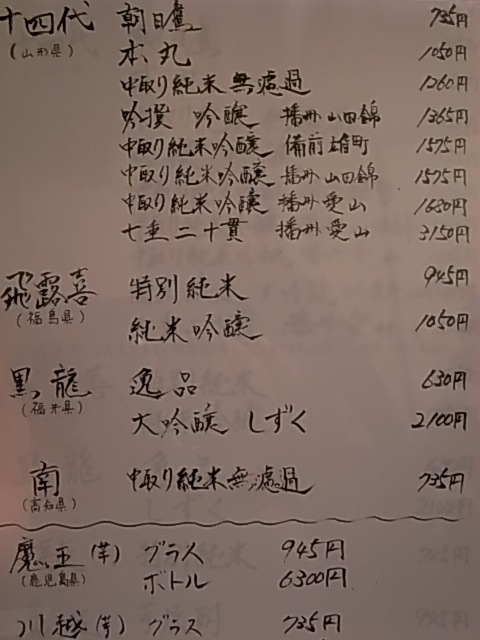 十四代 朝日鷹 735円
(山形県) 本丸 1050円
中取り純米無濾過 1260円
吟撰 吟醸 播州山田錦 1365円
中取り純米吟醸 備前雄町 1575円
中取り純米吟醸 播州山田錦 1575円
中取り純米吟醸 播州愛山 1680円
七垂二十貫 播州愛山 3150円
飛露喜 特別純米 945円
(福島県) 純米吟醸 1050円
黒龍 逸品 630円
(福井県) 大吟醸 しずく 2100円
南 中取り純米無濾過 735円
(高知県)
魔王(芋) グラス 945円
(鹿児島県) ボトル 6300円
川越(芋) グラス 735円